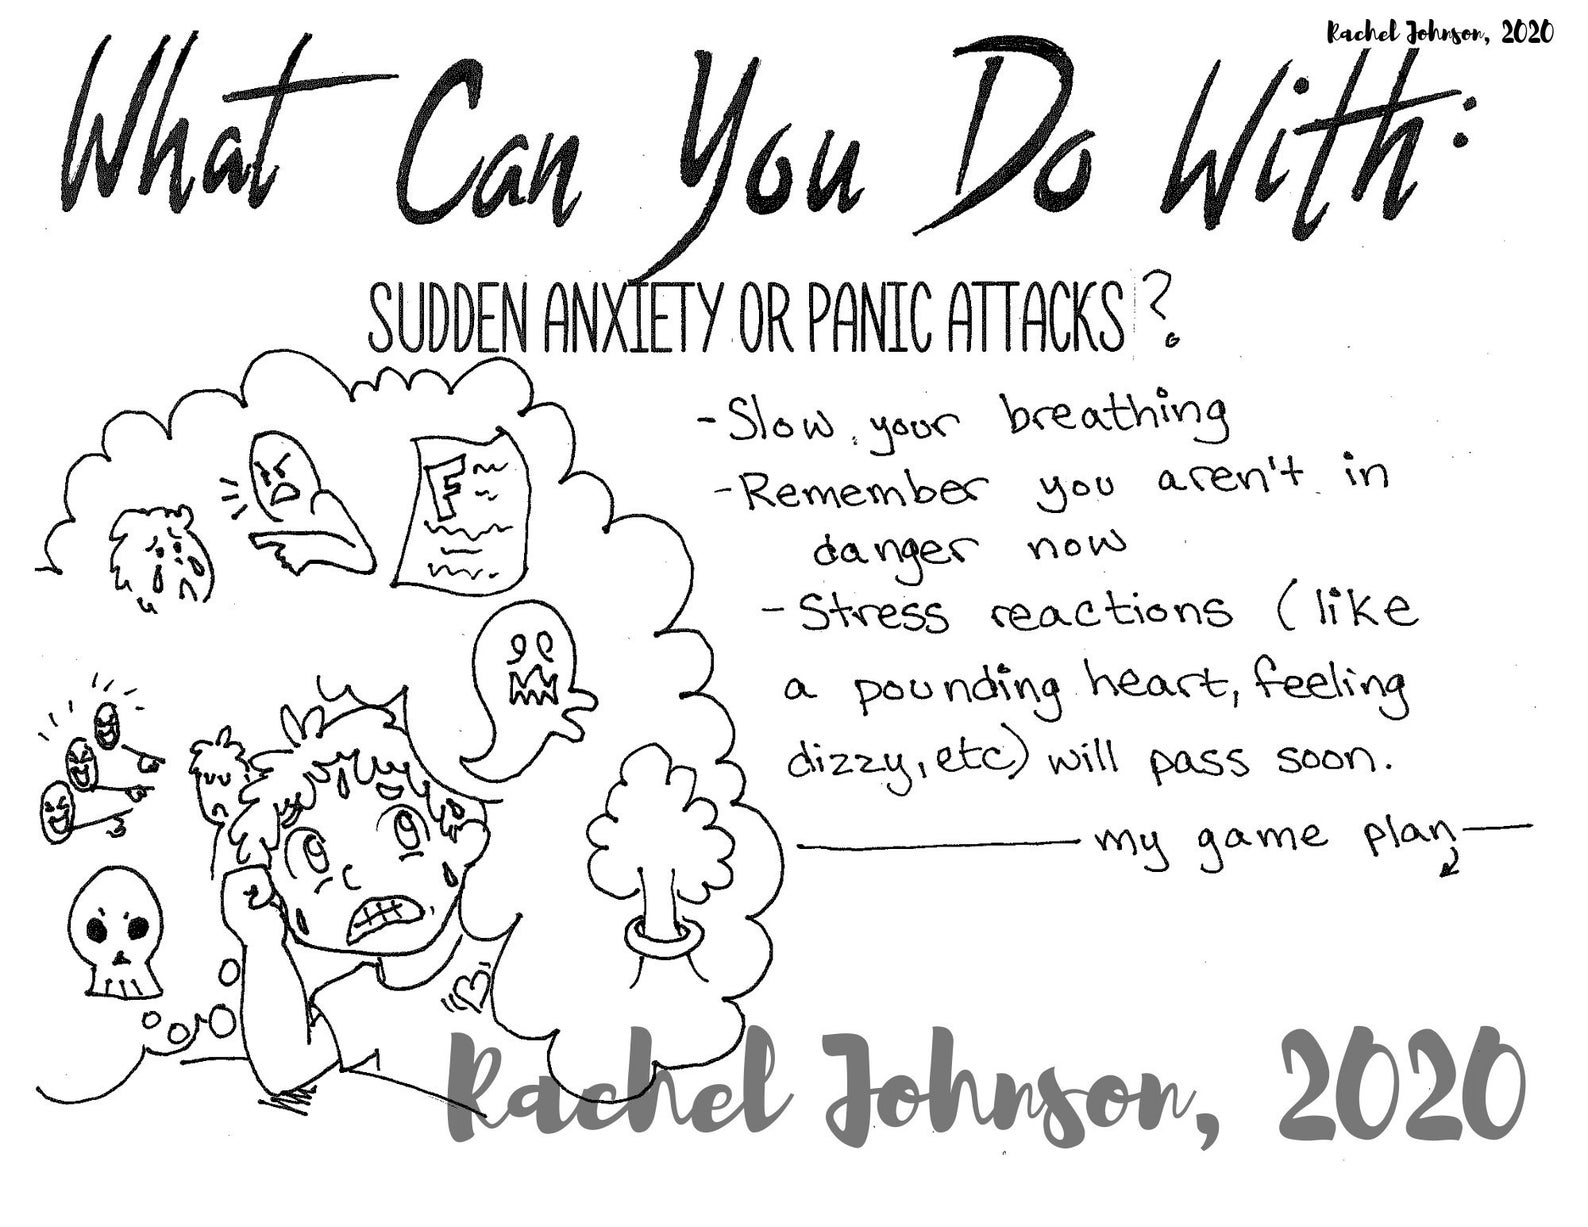 Rachel Johnson, 2020
What Can You Do With:
SUDDEN ANXIETY OR PANIC ATTACKS?
- Slow your breathing
- Remember you aren't in
danger now
- Stress reactions (like
a pounding heart, feeling
dizzy, etc) will pass soon.
my game plan
F
Rachel Johnson, 2020